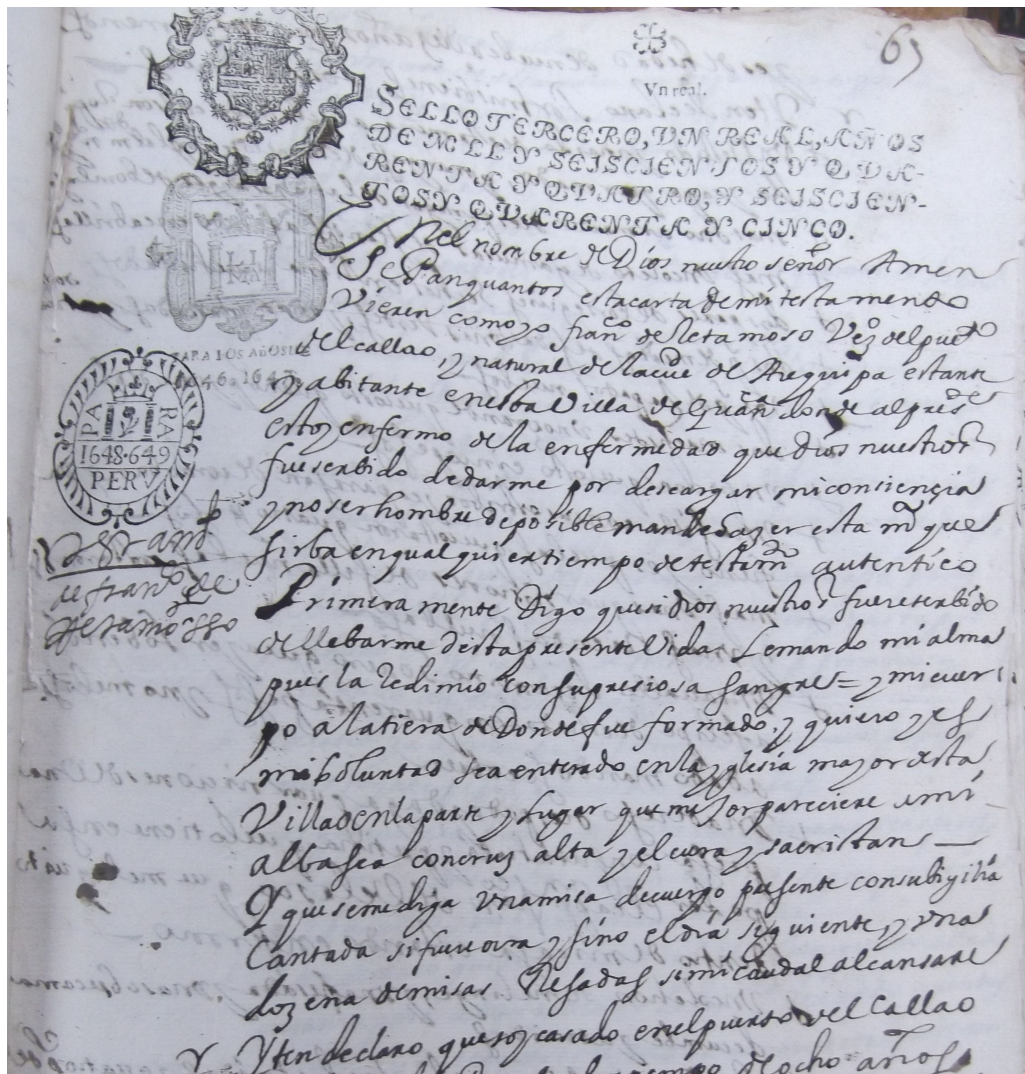 65
Vn real.
SELLO TERCERO, VN REAL, AÑOS
DE MILL Y SEISCIENTOS Y QVA-
RENTA Y QVATRO, Y SEISCIEN-
TOS Y QVARENTA Y CINCO.
LIMA
PARA LOS AñOS DE
1646. 1647
PARA
1648·649
PERV
En el nombre de Dios nuestro señor Amen
Sepan quantos esta carta de mi testamento
Vieren como yo franco de Retamoso Vezo del puerto
del callao, y natural de la ciud de Arequipa estante
y abitante en esta Villa de donde al preste
estoy enfermo de la enfermedad que dios nuestro sr
fue serbido de darme por descargar mi consiençia
y no ser hombre de posible mande hazer esta ma que
sirba en qualquier tiempo de testamto autentico
de franco de
Retamosso
Primeramente Digo que si dios nuestro sr fuere serbido
de llebarme desta presente Vida le mando mi alma
pues la Redimio con su presiosa sangre = y mi cuer
po a la tiera de Donde fue formado, y quiero y es
mi boluntad sea enterado en la yglesia mayor desta
Villa o en la parte y lugar que mejor pareciere a mi
albasea con cruz alta y el cura y sacristan
Y que se me diga vna misa de cuerpo presente con su bigilia
Cantada si fuere ora y sino el dia siguiente, y vna
dozena de misas Resadas si mi caudal alcansare
Y Yten declaro que soy casado en el puerto del Callao
tiempo de ocho años